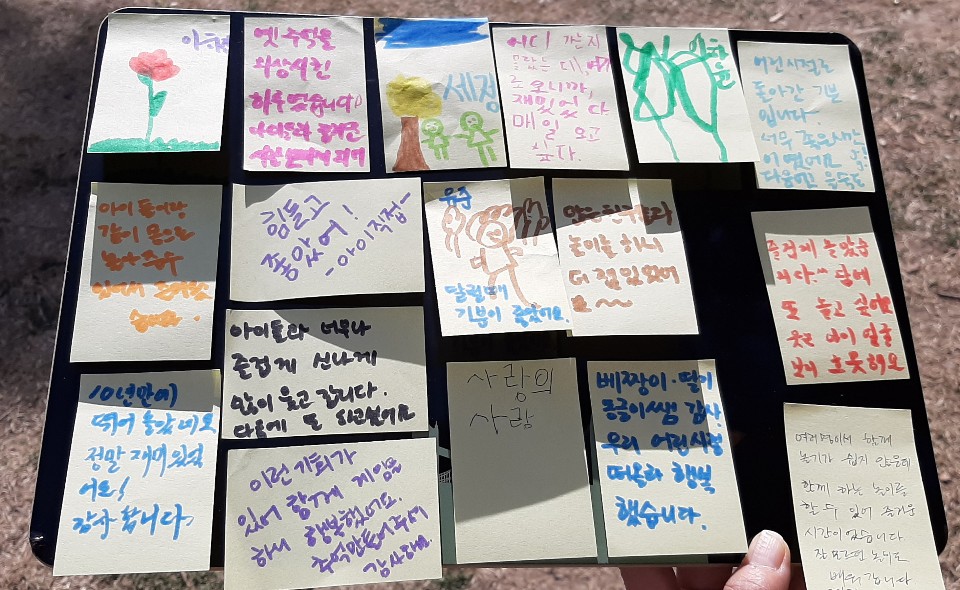 옛 추억을
회상시킨
하루였습니다
아이들과 즐거운
세정
어디 갈 는지
몰랐는데, 여기
로 오니까,
재밌었다
매일 오고
싶다.
어린시절로
돌아간 기분
입니다.
너무 좋은시간
이였어요
아이들이랑
같이 몸으로
놀아줄수
있어서
힘들고
좋았어!
-아이직접-
유준
달릴때
기분이 좋았어요.
놀이를 하니
더 재밌었어
요~
즐겁게 놀았습
니다.^^ 담에
또 놀고 싶어요
아이들과 너무나
즐겁게 신나게
많이 웃고 갑니다.
다음에 또 하고싶어요
10년만에
뛰어 놀았네요
정말 재미있었
어요!
감사합니다
이런 기회가
있어 함께 게임을
하니 행복했어요.
추억만들어주셔
감사해요.
사랑의
사람
베짱이·딸이
동글이쌤 감사.
우리 어린시절
떠올라 행복
했습니다.
여러명이서 함께
놀기가 쉽지 않은데
함께 하는 놀이를
할 수 있어 즐거운
시간이었습니다
잘 모르던 놀이도
배워갑니다